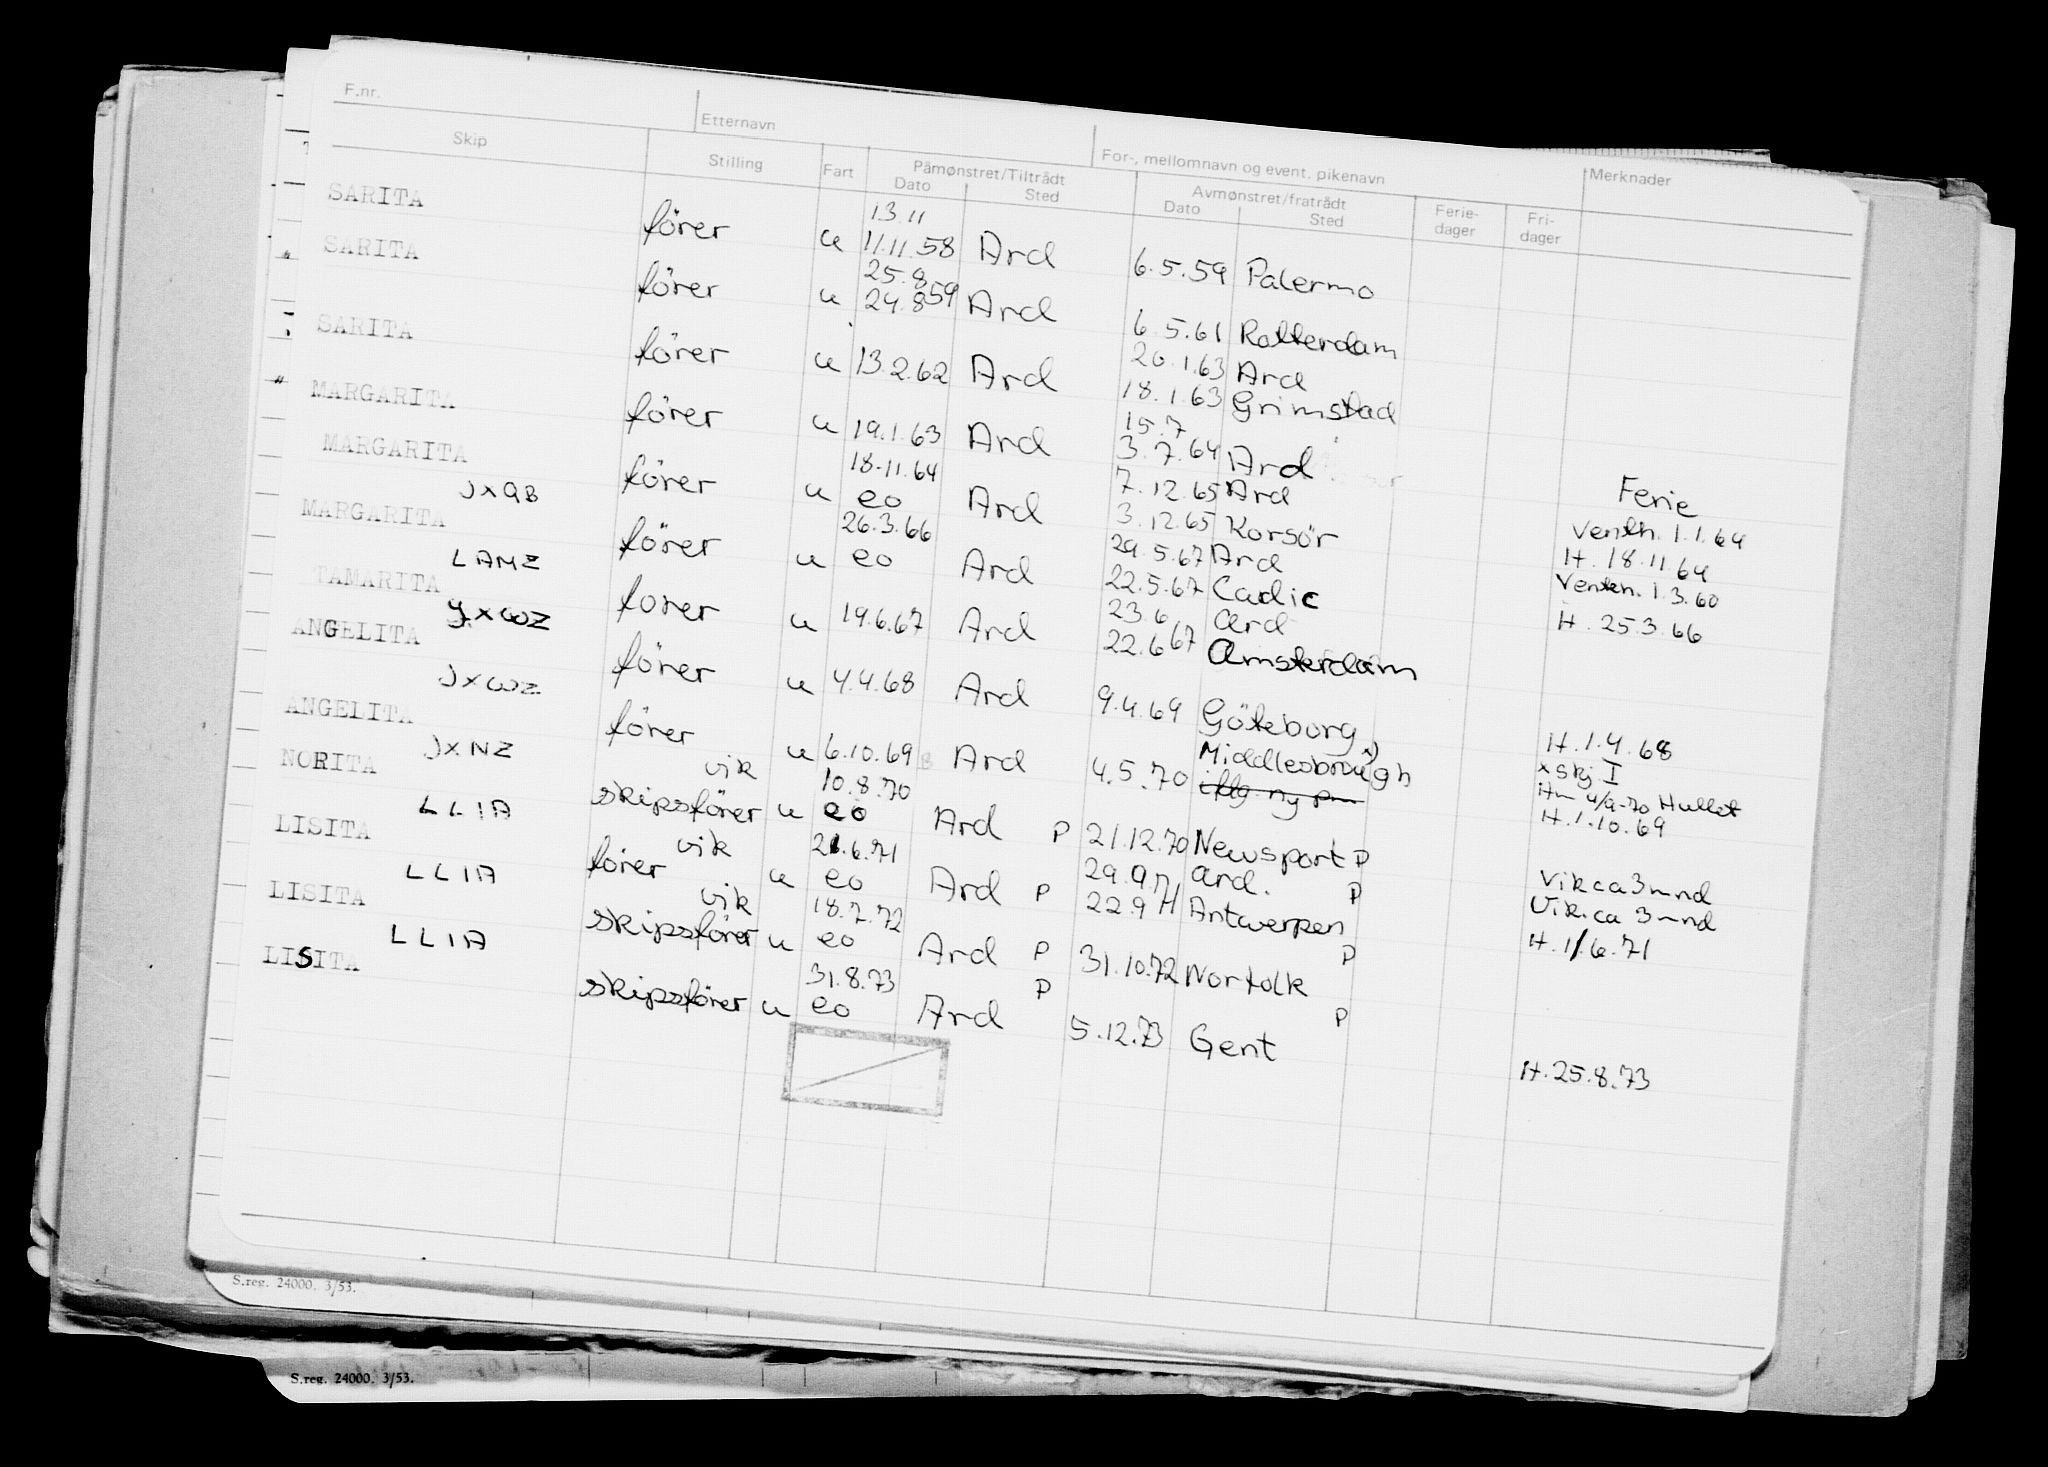 F.nr.
Etternavn
For-, mellomnavn og event. pikenavn
Skip
Stilling
Fart
Påmønstret/Tiltrådt
Dato
Sted
Avmønstret/fratrådt
Dato
Sted
Ferie-
dager
Fri-
dager
Merknader
SARITA
förer u 13.11 11.11.58 Ard 6.5.59 Palermo
SARITA
förer u 25.8 24.8 59 Ard 6.5.61 Rotterdam
SARITA
förer u 13.2.62 Ard 20.1.63 Ard
18.1.63 Grimstad
MARGARITA
förer u 19.1.63 Ard 15.7
3.7.64 Ard
Ferie
MARGARITA
JXQB
förer u 18.11.64 eo Ard 7.12.65 Ard
3.12.65 Korsör
Venth. 1.1.64
H. 18.11.64
MARGARITA
LAMZ
förer u 26.3.66 eo Ard 29.5.67 Ard
22.5.67 Cadic
Venten. 1.3.60
H. 25.3.66
TAMARITA
JXWZ
förer u 19.6.67 Ard 23.6 Ard
22.6 67 Amsterdam
ANGELITA
JXWZ
förer u 4.4.68 Ard 9.4.69 Göteborg
H. 1.4.68
ANGELITA
JXNZ
förer u 6.10.69 Ard 4.5.70 Middlesbrough x)
x skj I
4/9-70 Hullet
H. 1.10.69
NORITA
LLIA
vik
skipsförer u 10.8.70 eo Ard P 21.12.70 Newsport P
Vik ca 3 mnd
LISITA
LLIA
vik
förer u 21.6.71 eo Ard P 29.9.71 Ard. P
22.9 71 Antwerpen
Vik. ca 3 mnd
H. 1/6.71
LISITA
LLIA
vik
skipsförer u 18.7.72 eo Ard P 31.10.72 Norfolk P
LISITA
skipsförer u 31.8.73 eo Ard P 5.12.73 Gent P
H. 25.8.73
S.reg. 24000. 3/53.
S.reg. 24000. 3/53.